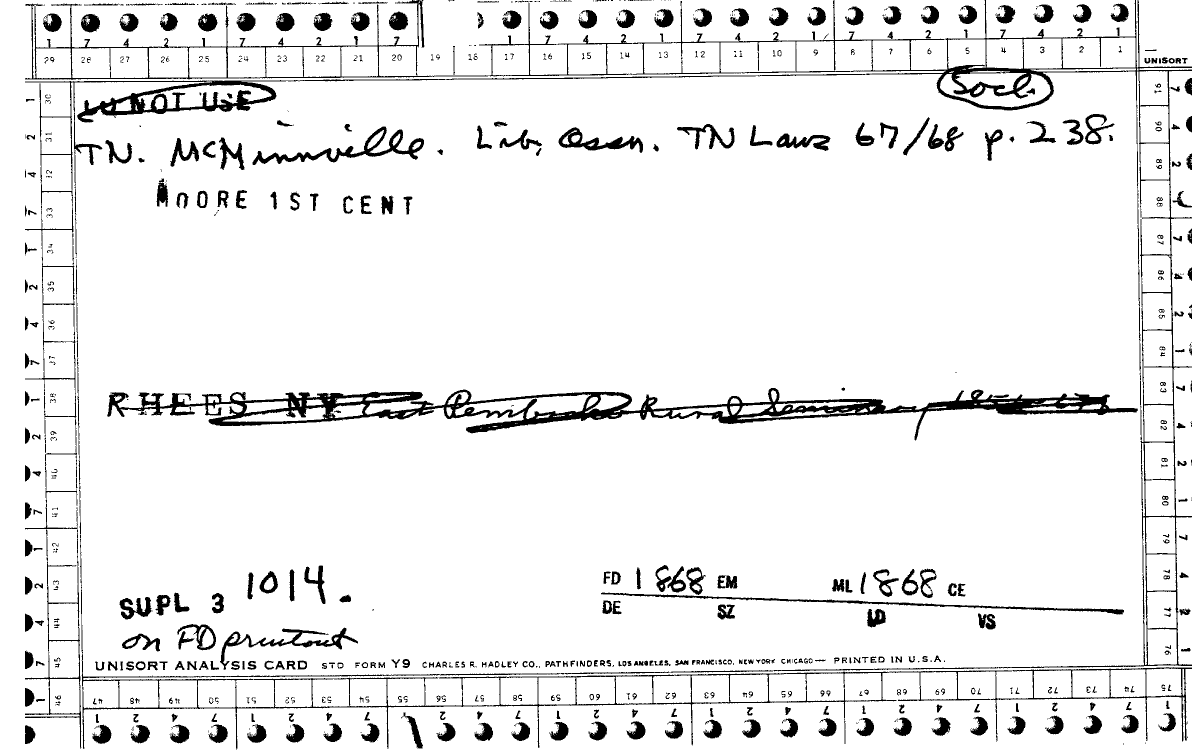 1 7 4 2 1 7 4 2 1 7 1 7 4 2 1 7 4 2 1 7 4 2 1
29 28 27 26 25 24 23 22 21 20 19 18 17 16 15 14 13 12 11 10 9 8 7 6 5 4 3 2 1
UNISORT
DO NOT USE
Socl.
TN. McMinnville. Lib. Assn. TN Laws 67/68 p. 238.
MOORE 1ST CENT
RHEES NY East Pembroke Rural Seminary
SUPL 3 1014.
on FD printout
FD 1868 EM ML 1868 CE
DE SZ LD VS
UNISORT ANALYSIS CARD STD FORM Y9 CHARLES R. HADLEY CO., PATHFINDERS, LOS ANGELES, SAN FRANCISCO, NEW YORK CHICAGO — PRINTED IN U.S.A.
47 48 49 50 51 52 53 54 55 56 57 58 59 60 61 62 63 64 65 66 67 68 69 70 71 72 73 74 75